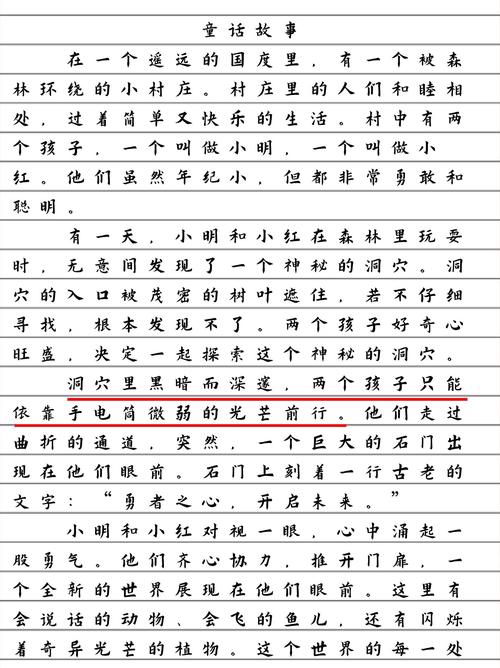 童话故事
在一个遥远的国度里，有一个被森
林环绕的小村庄。村庄里的人们和睦相
处，过着简单又快乐的生活。村中有两
个孩子，一个叫做小明，一个叫做小
红。他们虽然年纪小，但都非常勇敢和
聪明。
有一天，小明和小红在森林里玩耍
时，无意间发现了一个神秘的洞穴。洞
穴的入口被茂密的树叶遮住，若不仔细
寻找，根本发现不了。两个孩子好奇心
旺盛，决定一起探索这个神秘的洞穴。
洞穴里黑暗而深邃，两个孩子只能
依靠手电筒微弱的光芒前行。他们走过
曲折的通道，突然，一个巨大的石门出
现在他们眼前。石门上刻着一行古老的
文字：“勇者之心，开启未来。”
小明和小红对视一眼，心中涌起一
股勇气。他们齐心协力，推开门扉，一
个全新的世界展现在他们眼前。这里有
会说话的动物、会飞的鱼儿，还有闪烁
着奇异光芒的植物。这个世界的每一处